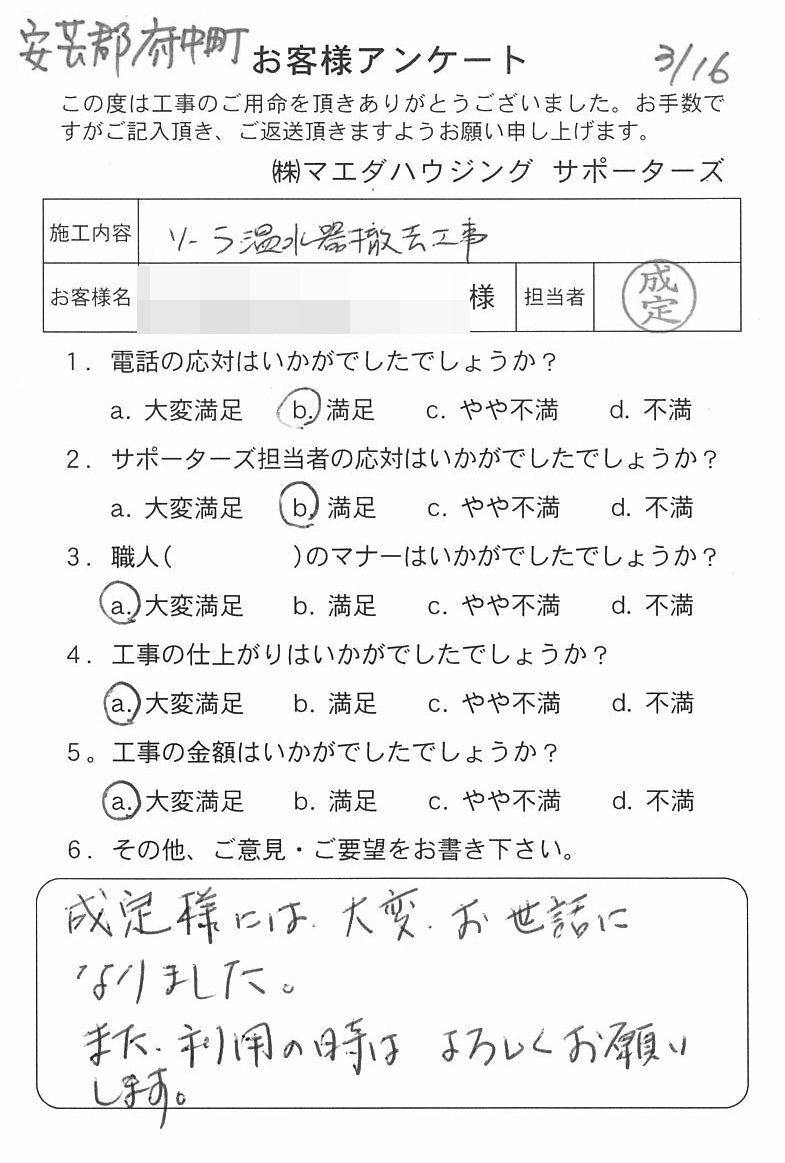 安芸郡府中町
お客様アンケート 3/16
この度は工事のご用命を頂きありがとうございました。お手数で
すがご記入頂き、ご返送頂きますようお願い申し上げます。
㈱マエダハウジング サポーターズ
施工内容 ソーラ温水器撤去工事
お客様名 様 担当者 成定
1. 電話の応対はいかがでしたでしょうか？
a. 大変満足 b. 満足 c. やや不満 d. 不満
2. サポーターズ担当者の応対はいかがでしたでしょうか？
a. 大変満足 b. 満足 c. やや不満 d. 不満
3. 職人( )のマナーはいかがでしたでしょうか？
a. 大変満足 b. 満足 c. やや不満 d. 不満
4. 工事の仕上がりはいかがでしたでしょうか？
a. 大変満足 b. 満足 c. やや不満 d. 不満
5。工事の金額はいかがでしたでしょうか？
a. 大変満足 b. 満足 c. やや不満 d. 不満
6. その他、ご意見・ご要望をお書き下さい。
成定様には、大変、お世話に
なりました。
また、利用の時は よろしくお願い
します。